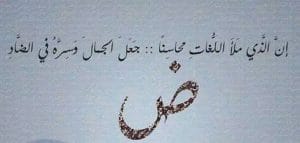 إنَّ الَّذي مَلَأَ اللُّغاتِ مَحاسِنًا :: جَعَلَ الجَمالَ وَسِرَّهُ في الضَّادِ
ض